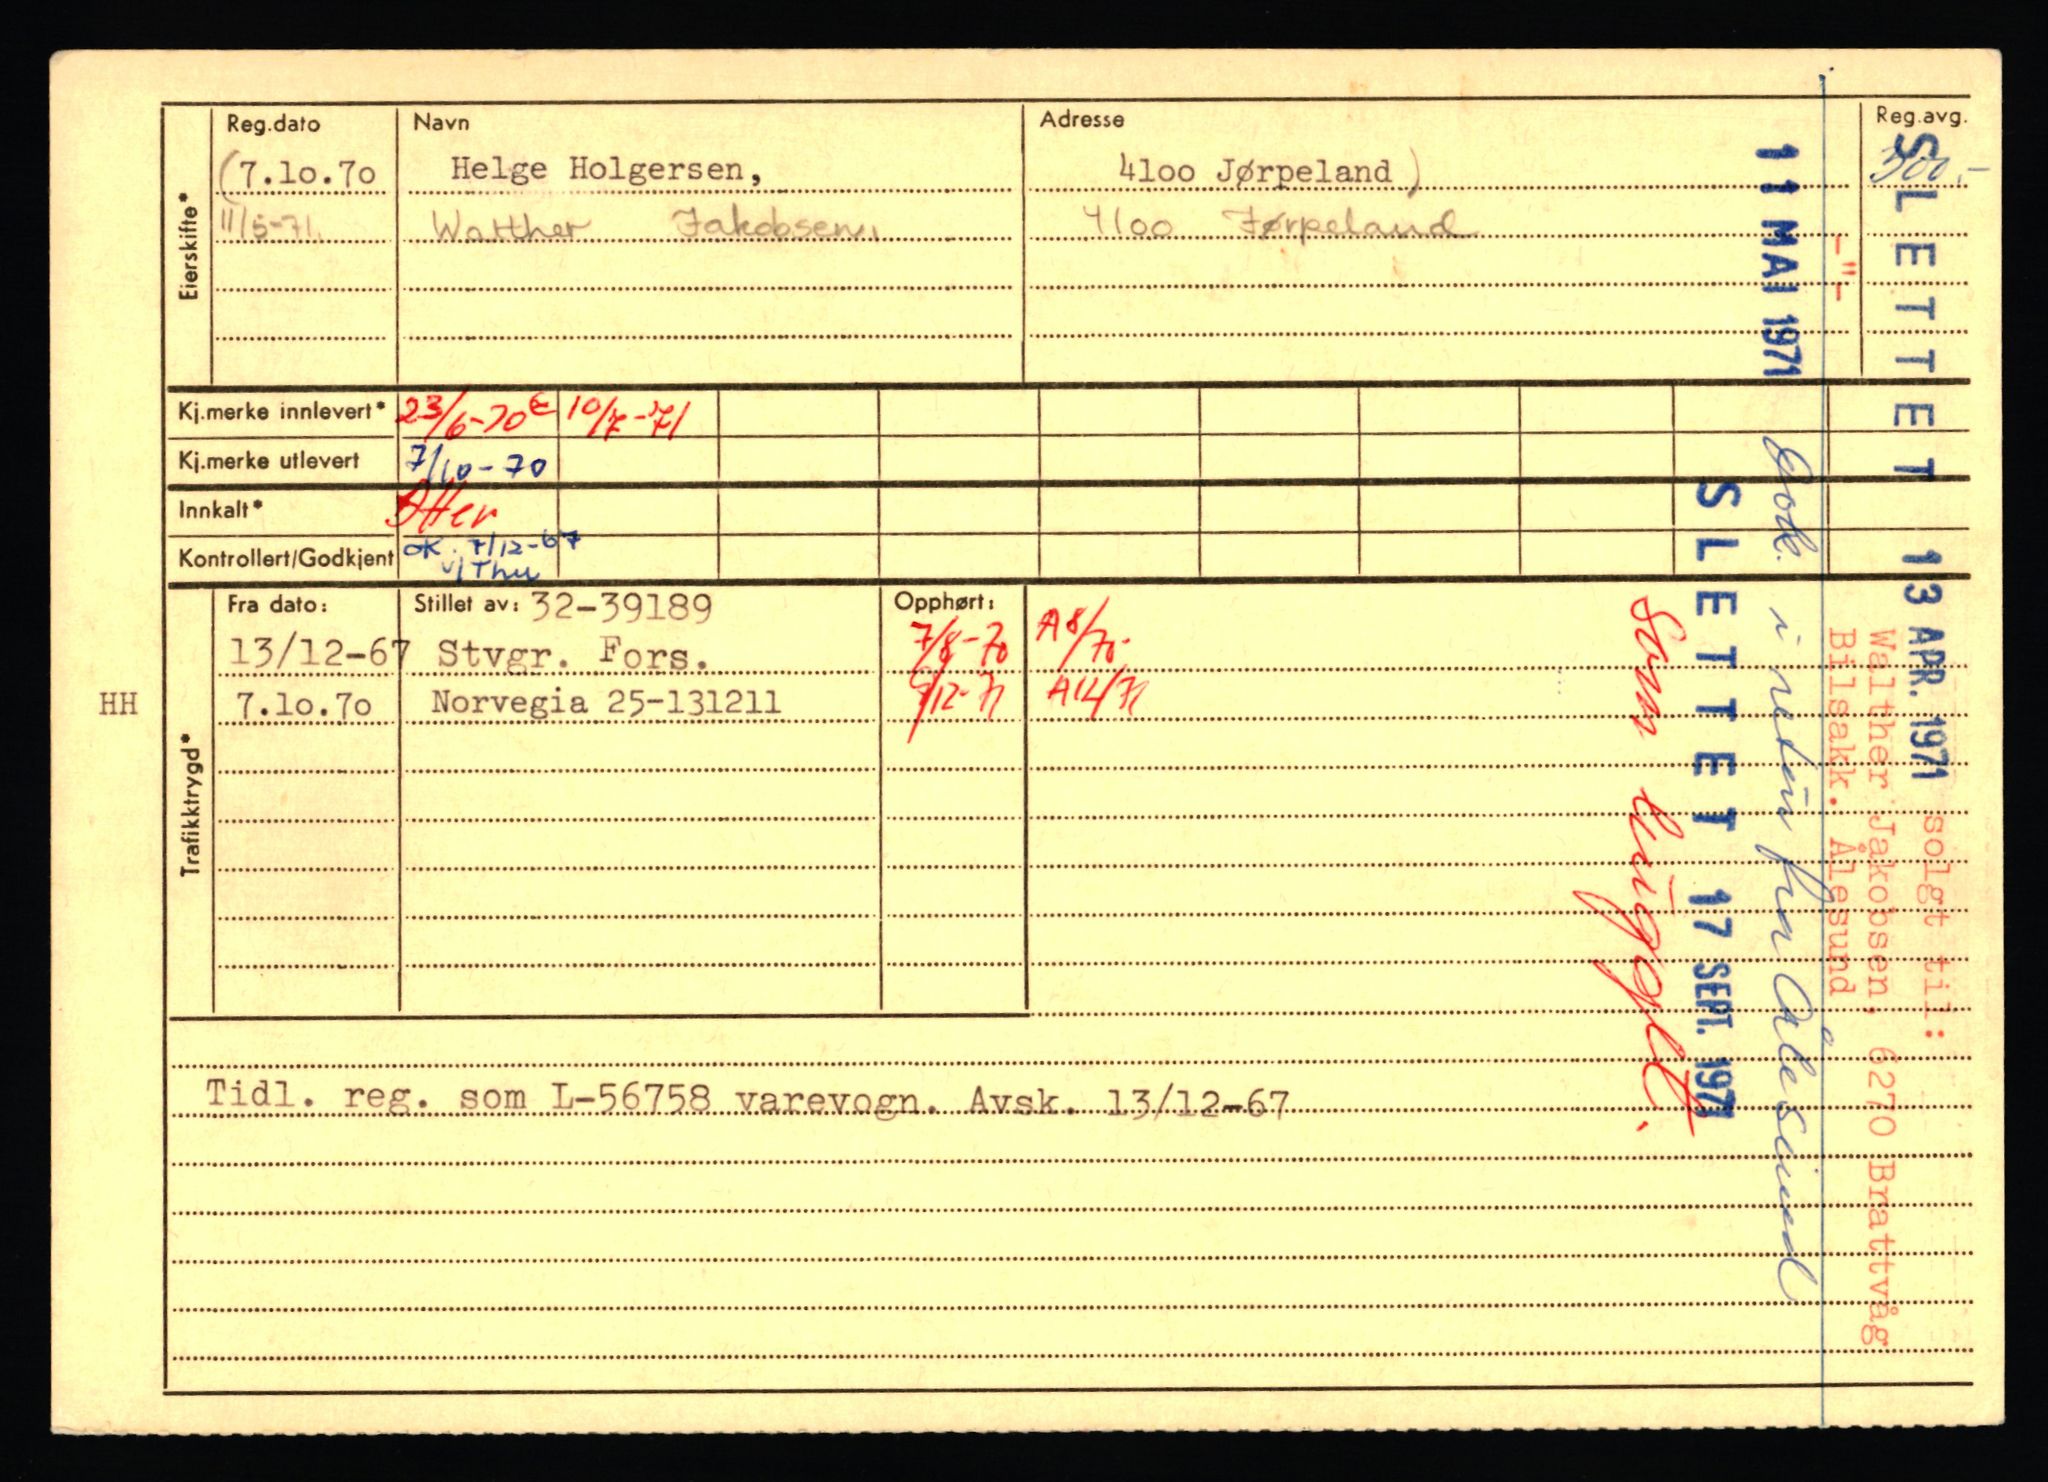 Reg.dato Navn Adresse Reg.avg.
(7.10.70 Helge Holgersen, 4100 Jørpeland) 300,-
11/5-71. Walther Jakobsen, 4100 Jørpeland
Eierskifte*
Kj.merke innlevert* 23/6-70 10/7-71
Kj.merke utlevert 7/10-70
Innkalt* Atter
Kontrollert/Godkjent OK. 7/12-67
v/Thu
Fra dato: Stillet av: 32-39189 Opphørt:
13/12-67 Stvgr. Fors. 7/8-70 A8/70
HH 7.10.70 Norvegia 25-131211 9/12-71 A14/71
Trafikktrygd*
Tidl. reg. som L-56758 varevogn. Avsk. 13/12-67
SLETTET 13 APR. 1971 solgt til:
Walther Jakobsen, 6270 Brattvåg
-"- Bilsakk. Ålesund
11 MAI 1971 Godk. i retur fra Ålesund
SLETTET 17 SEPT. 1971
som